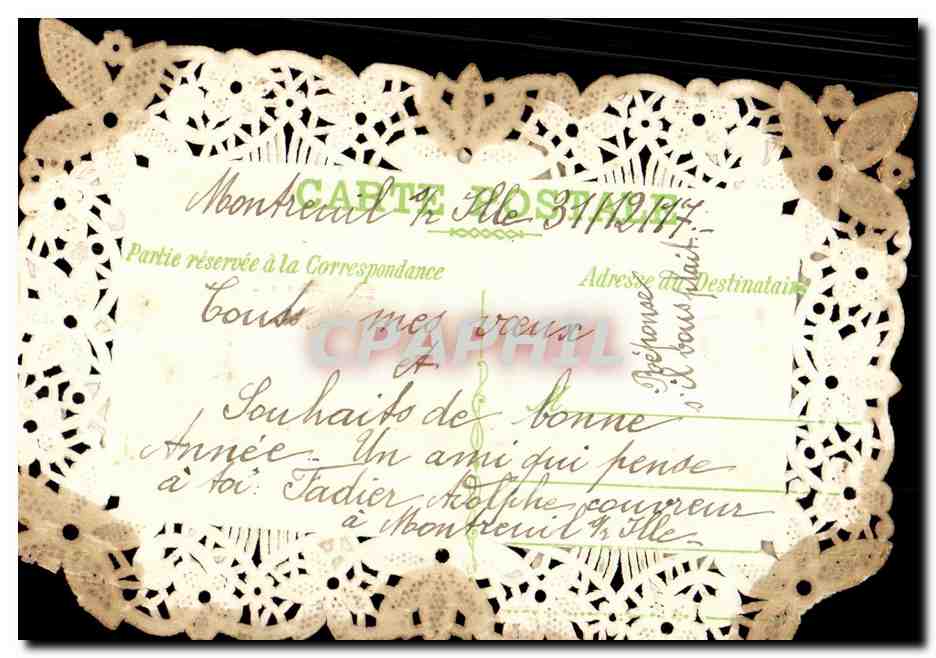 CARTE POSTALE
Montreuil s/ Ille 31/12/17.-
Partie réservée à la Correspondance
Adresse du Destinataire
Tous mes vœux
et
Souhaits de bonne
Année. Un ami qui pense
à toi. Tadier Adolphe couvreur
à Montreuil s/ Ille.
Réponse
s'il vous plait.
CPAPHIL